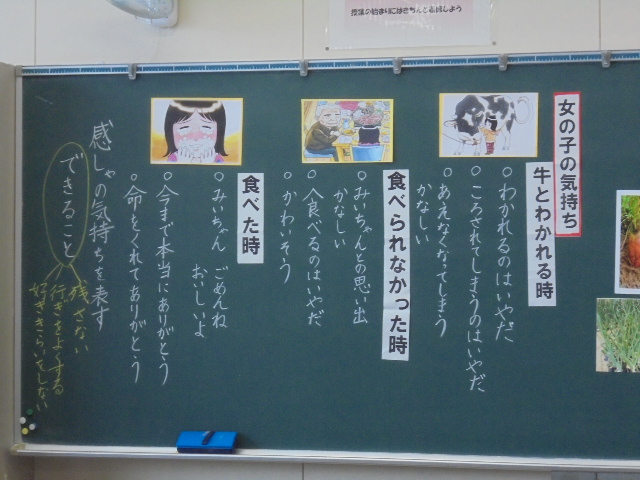 女の子の気持ち
牛とわかれる時
○わかれるのはいやだ
○ころされてしまうのはいやだ
○あえなくなってしまう
かなしい
食べられなかった時
○みいちゃんとの思い出
かなしい
○食べるのはいやだ
○かわいそう
食べた時
○みいちゃん ごめんね
おいしいよ
○今まで本当にありがとう
○命をくれてありがとう
感しゃの気持ちを表す
できること
残さない
行ぎをよくする
好ききらいをしない